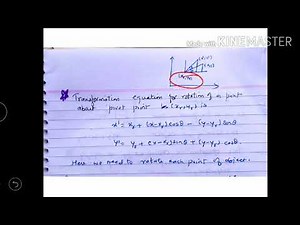 Made with KINEMASTER
(x',y')
(x,y)
(xr,yr)
Transformation equation for rotation of a point
about pivot point (xr,yr) is
x' = xr + (x-xr) cosθ - (y-yr) sinθ
y' = yr + (x-xr) sinθ + (y-yr) cosθ.
Here we need to rotate each point of object.